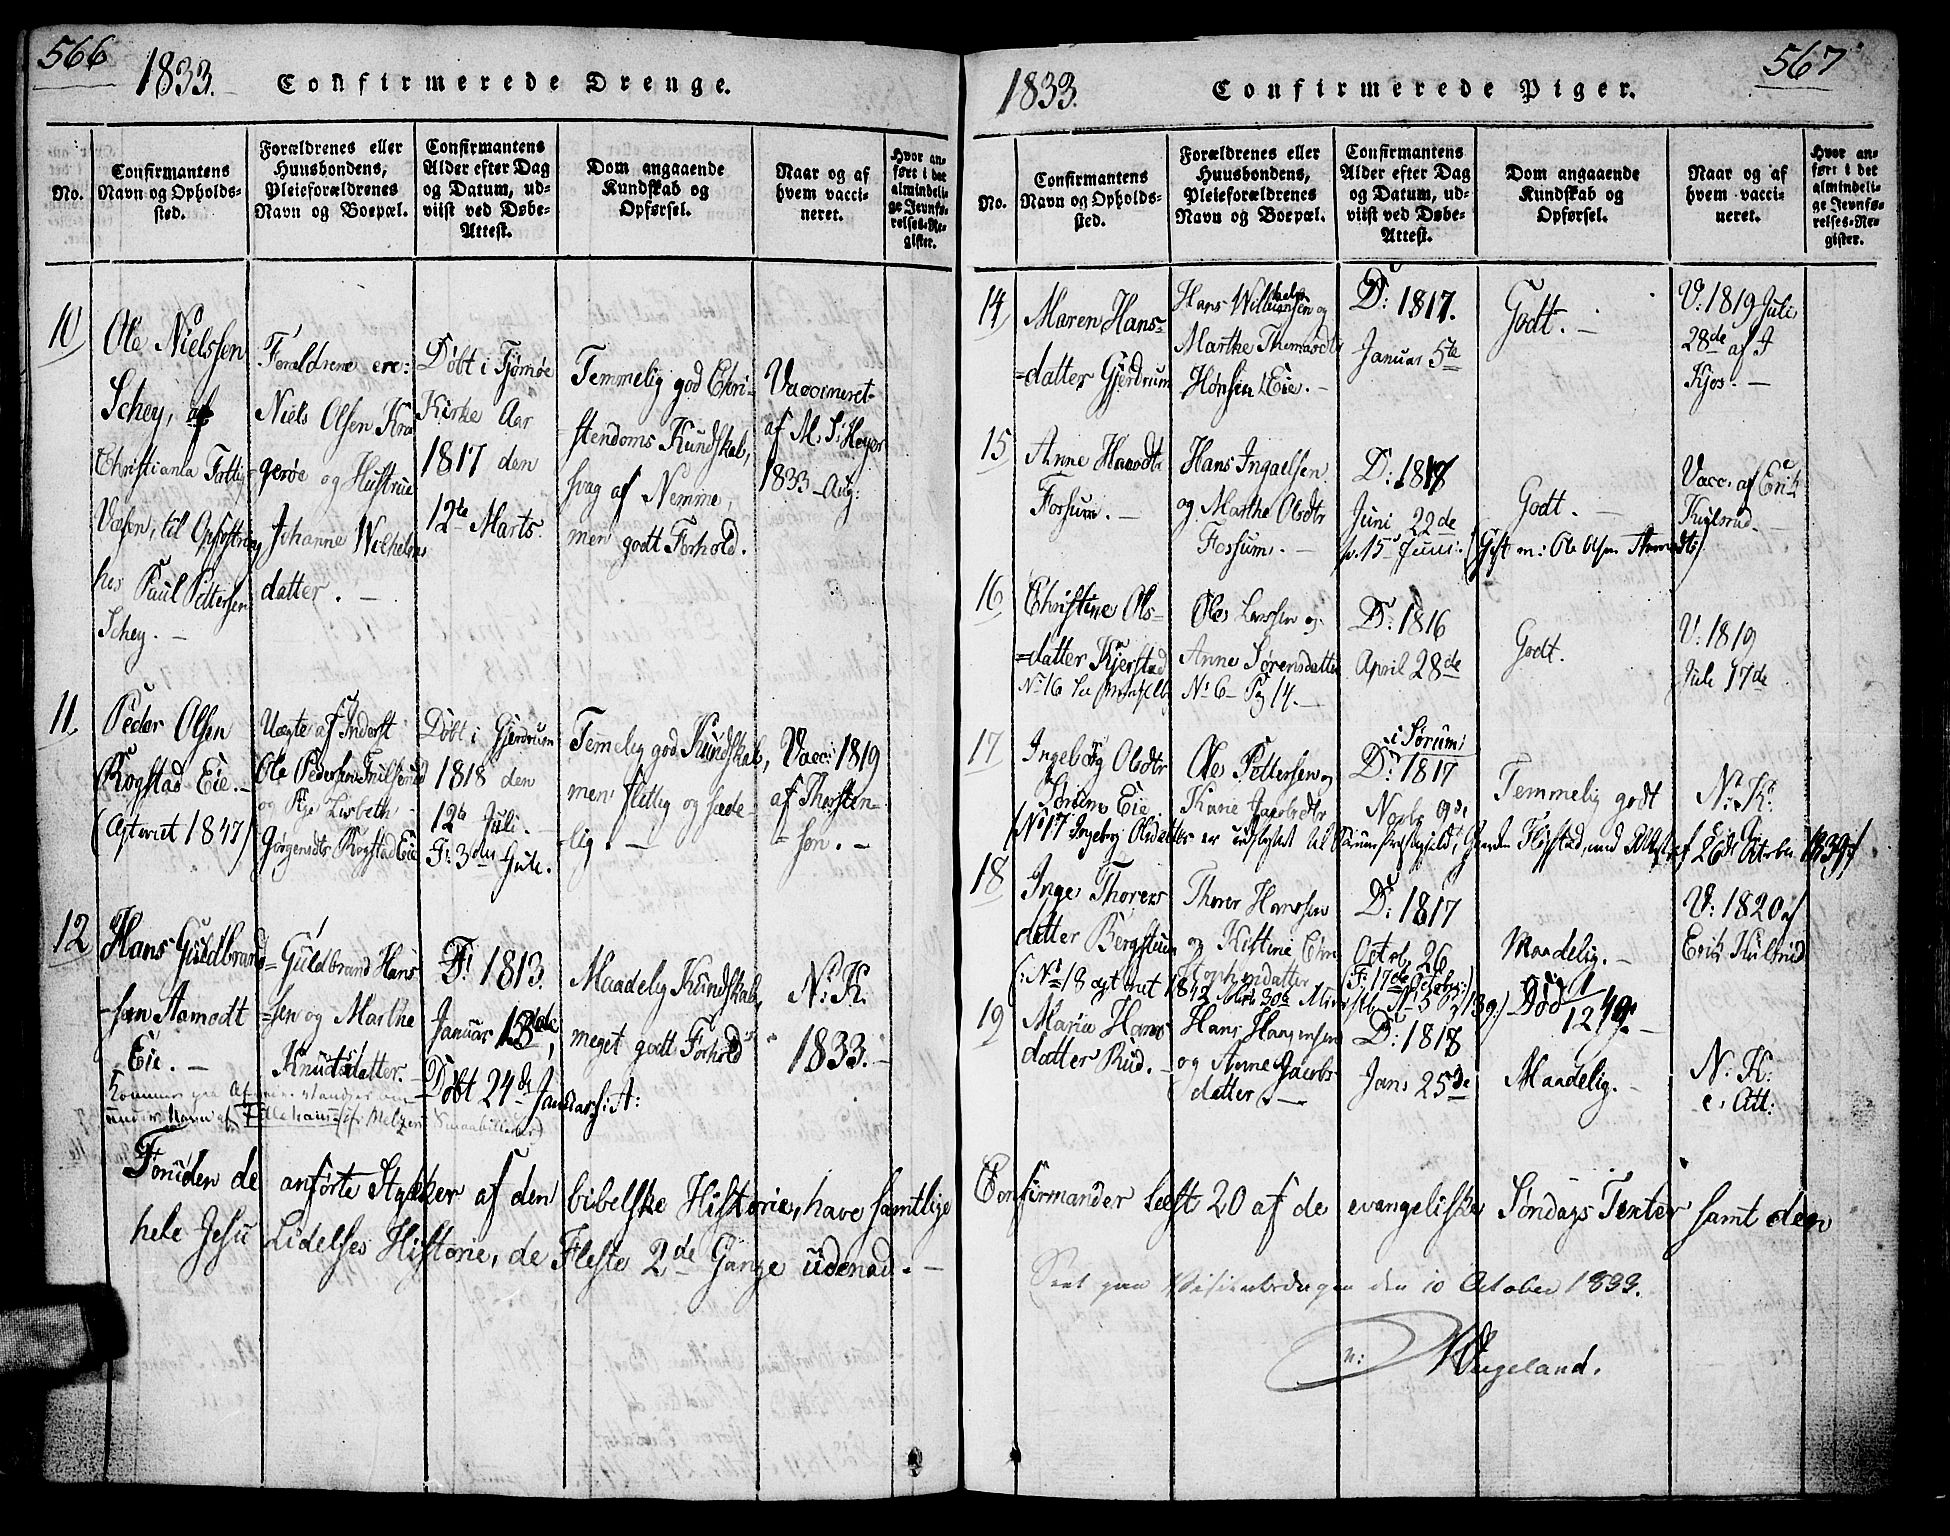 566
1833.
Confirmerede Drenge.
No.
Confirmantens
Navn og Opholds-
sted.
Forældrenes eller
Huusbondens,
Pleieforældrenes
Navn og Boepæl.
Confirmantens
Alder efter Dag
og Datum, ud-
viist ved Døbe-
Attest.
Dom angaaende
Kundskab og
Opførsel.
Naar og af
hvem vacci-
neret.
Hvor an-
ført i det
almindeli-
ge Jevnfø-
relses-Re-
gister.
10
Ole Nielssen
Schey, af
Christiania Fattig
Væsen, til Opfostring
hos Paul Pettersen
Schey. -
Forældrene ere:
Niels Olsen Kra
gerøe og Hustrue
Johanne Wilhelms
datter. -
Døbt i Tjømøe
Kirke Aar
1817 den
12te Marts.
Temmelig god Chri-
stendoms Kundskab,
svag af Nemme,
men godt Forhold.
Vaccineret
af M. S. Heyer
1833 Aug:
11.
Peder Olsen
Rogstad Eie. -
(Agteviet 1847)
Uægte af Inderst
Ole Pedersen
og Pige Lisbeth
Jørgensdtr Rogstad Eie
Døbt i Gjerdrum
1818 den
12te Juli. -
F: 3die Juli.
Temelig god Kundskab,
men flittig og sæde-
lig. -
Vacc: 1819
af Thorsten-
-sen. -
12
Hans Guldbrand
-sen Aamodt
Eie. -
Guldbrand Hans
=sen og Marthe
Knudsdatter. -
F: 1813.
Januar 15de,
Døbt 24de Januar s: A:
Maadelig Kundskab,
meget godt Forhold
N: K:
1833. -
Kommer paa
under Navn af
Foruden de anførte Stykker af den bibelske Historie, have samtlige
hele Jesu Lidelses Historie, de Fleste 2de Gange udenad. -
567
1833.
Confirmerede Piger.
No.
Confirmantens
Navn og Opholds-
sted.
Forældrenes eller
Huusbondens,
Pleieforældrenes
Navn og Boepæl.
Confirmantens
Alder efter Dag
og Datum, ud-
viist ved Døbe-
Attest.
Dom angaaende
Kundskab og
Opførsel.
Naar og af
hvem vacci-
neret.
Hvor an-
ført i det
almindeli-
ge Jevnfø-
relses-Re-
gister.
14
Maren Hans-
=datter Gjerdrum
Hans Wilhelmsen og
Marthe Thomasdtr
Hønsen Eie. -
D: 1817.
Januar 5te
Godt. -
V. 1819 Juli
28de af J
Kjos. -
15
Anne Hansdtr
Fossum. -
Hans Ingaelsen
og Marthe Olsdtr
Fossum. -
D: 1817
Juni 22de
15 Juni:
Godt. -
(Gift m: Ole Olsen
Vacc. af Erik
Kulsrud. -
16
Christine Ols-
=datter Kjerstad
Ole Larssen og
Anne Sørensdatter
D: 1816
April 28de
Godt.
V: 1819
Juli 17de
No 16
No 6 - Pag 14. -
17
Ingeborg Olsdtr
Sørum Eie
Ole Pettersen og
Karie Jacobsdtr
i Sørum:
D: 1817
Novbr 9de
Temmelig godt
N: K:
(No 17 Ingeborg Olsdatter er udflyttet til Sørum Præstegjeld, med Attest af 26de 1839)
18
Inge Thorers
datter Bergstuen
Thorer Hanssen
og Kistine Chri
stophersdatter
D: 1817
Octrb. 26
F: 17de October:
Maadelig. -
V: 1820 af
Erik Kulsrud
(: No 18 agteviet 1842 No 5 Pag 139:)
Død 1/12 49. -
19
Marie Hans
datter Rud. -
Hans Hansen
og Anne Jacobs
datter. -
D: 1818
Jan: 25de
Maadelig. -
N: K:
e: Att:
Confirmander læst 20 af de evangeliske Søndags Texter samt den
Seet paa Visitatsdagen den 10 October 1833.
n:
Wergeland.